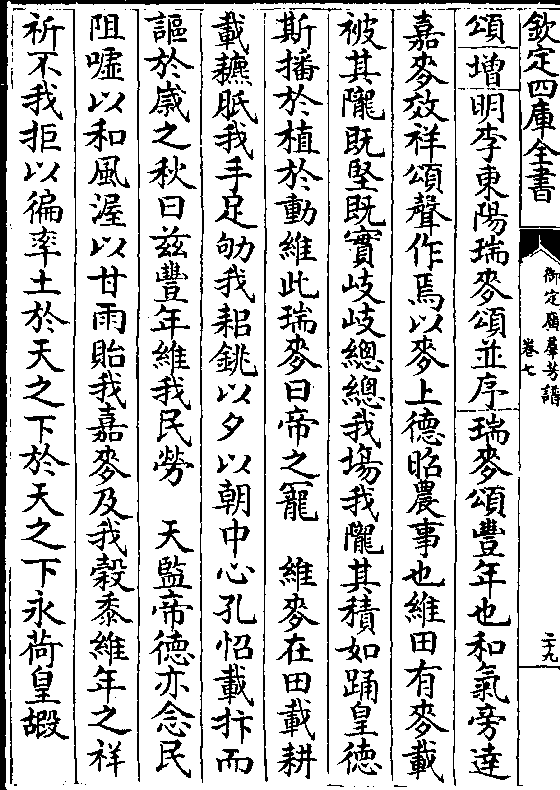 欽定四庫全書
御定廣羣芳譜
卷七
二十九
頌增明李東陽瑞麥頌並序瑞麥頌豐年也和氣旁達
嘉麥效祥頌聲作焉以麥上德昭農事也維田有麥載
被其隴既堅既實岐岐總總我場我隴其積如踊皇德
斯播於植於動維此瑞麥曰帝之寵　維麥在田載耕
載穮胝我手足劬我耜銚以夕以朝中心孔怊載抃而
謳於歲之秋曰茲豐年維我民勞　天監帝德亦念民
阻噓以和風渥以甘雨貽我嘉麥及我穀黍維年之祥
祈不我拒以徧率土於天之下於天之下永荷皇嘏